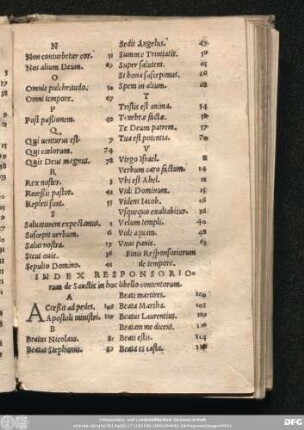 N
Non conturbetur cor. 51
Nos alium Deum. 67
O
Omnis pulchritudo. 50
Omni tempore. 67
P
Post passionem. 49
Q
Qui venturus est. 7
Qui cœlorum. 74
Quis Deus magnus. 78
R
Rex noster. 3
Recessit pastor. 41
Repleti sunt. 51
S
Salvatorem expectamus. 1
Suscepit verbum. 6
Salus nostra. 17
Sicut ovis. 38
Sepulto Domino. 41
Sedit Angelus. 47
Summæ Trinitatis. 56
Super salutem. 61
Si bona suscepimus. 60
Spem in alium. 68
T
Tristis est anima. 34
Tenebræ factæ. 36
Te Deum patrem. 57
Tua est potentia. 70
V
Virgo Israel. 8
Verbum caro factum. 14
Vbi est Abel. 21
Vidi Dominum. 15
Videns Iacob. 26
Vsquequo exaltabitur. 36
Velum templi. 40
Vidi aquam. 48
Vnus panis. 63
Finis Responsoriorum
de tempore.
INDEX RESPONSORIO-
rum de Sanctis in hoc libello contentorum.
A
Accessit ad pedes. 102
Apostoli ministri. 119
B
Beatus Nicolaus. 81
Beatus Stephanus. 89
Beati martires. 100
Beata Martha. 103
Beatus Laurentius. 105
Beatam me dicent. 110
Beati estis. 114
Beata es cæsta.